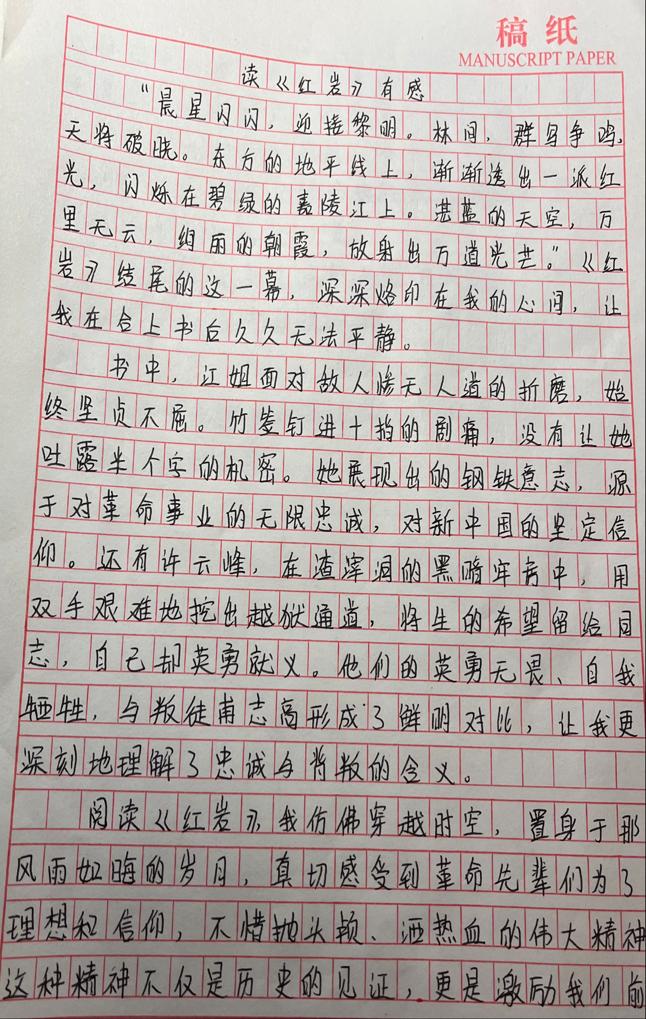 稿纸
MANUSCRIPT PAPER
读《红岩》有感
“晨星闪闪，迎接黎明。林间，群鸟争鸣，
天将破晓。东方的地平线上，渐渐透出一派红
光，闪烁在碧绿的嘉陵江上。湛蓝的天空，万
里无云，绚丽的朝霞，放射出万道光芒。”《红
岩》结尾的这一幕，深深烙印在我的心间，让
我在合上书后久久无法平静。
书中，江姐面对敌人惨无人道的折磨，始
终坚贞不屈。竹签钉进十指的剧痛，没有让她
吐露半个字的机密。她展现出的钢铁意志，源
于对革命事业的无限忠诚，对新中国的坚定信
仰。还有许云峰，在渣滓洞的黑暗牢房中，用
双手艰难地挖出越狱通道，将生的希望留给同
志，自己却英勇就义。他们的英勇无畏、自我
牺牲，与叛徒甫志高形成了鲜明对比，让我更
深刻地理解了忠诚与背叛的含义。
阅读《红岩》，我仿佛穿越时空，置身于那
风雨如晦的岁月，真切感受到革命先辈们为了
理想和信仰，不惜抛头颅、洒热血的伟大精神
这种精神不仅是历史的见证，更是激励我们前